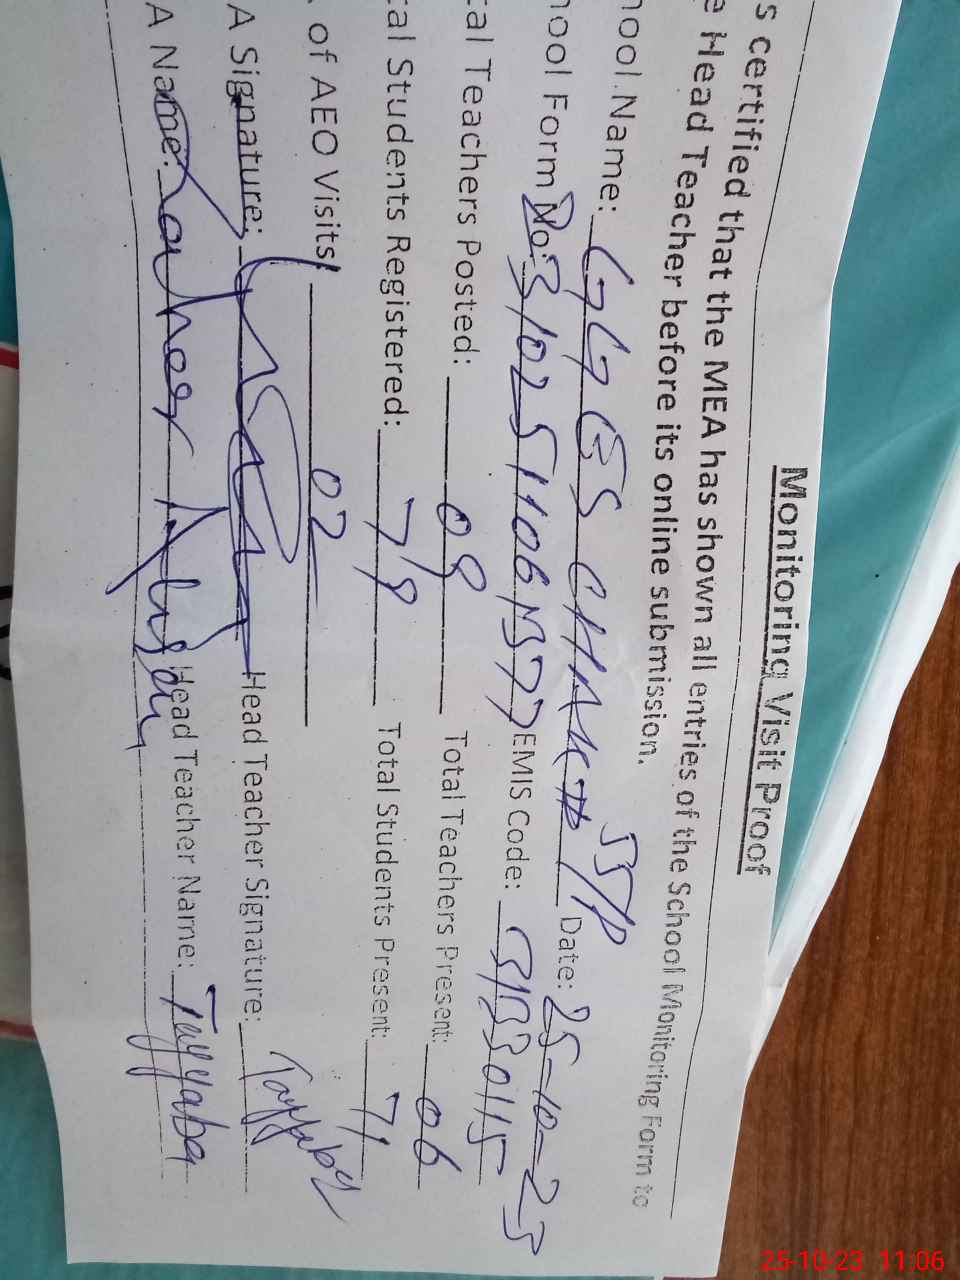 Monitoring Visit Proof
s certified that the MEA has shown all entries of the School Monitoring Form to
e Head Teacher before its online submission.
hool Name: GGES CHAK # 55/P Date: 25-10-23
hool Form No: EMIS Code: 31330115
tal Teachers Posted: 09 Total Teachers Present: 06
tal Students Registered: 79 Total Students Present: 71
. of AEO Visits: 02
A Signature: Head Teacher Signature: Tayyaba
A Name: Head Teacher Name: Tayyaba
25-10-23 11:06